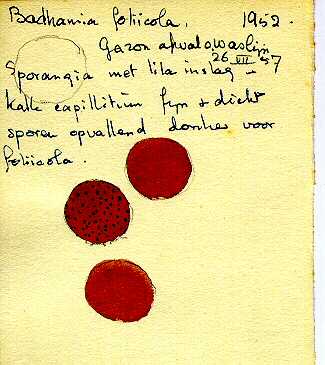 Badhamia foliicola. 1952.
Gazon
26 VII 57
Sporangia met lila inslag –
kalk capillitium fyn & dicht
sporen opvallend donker voor
foliicola.